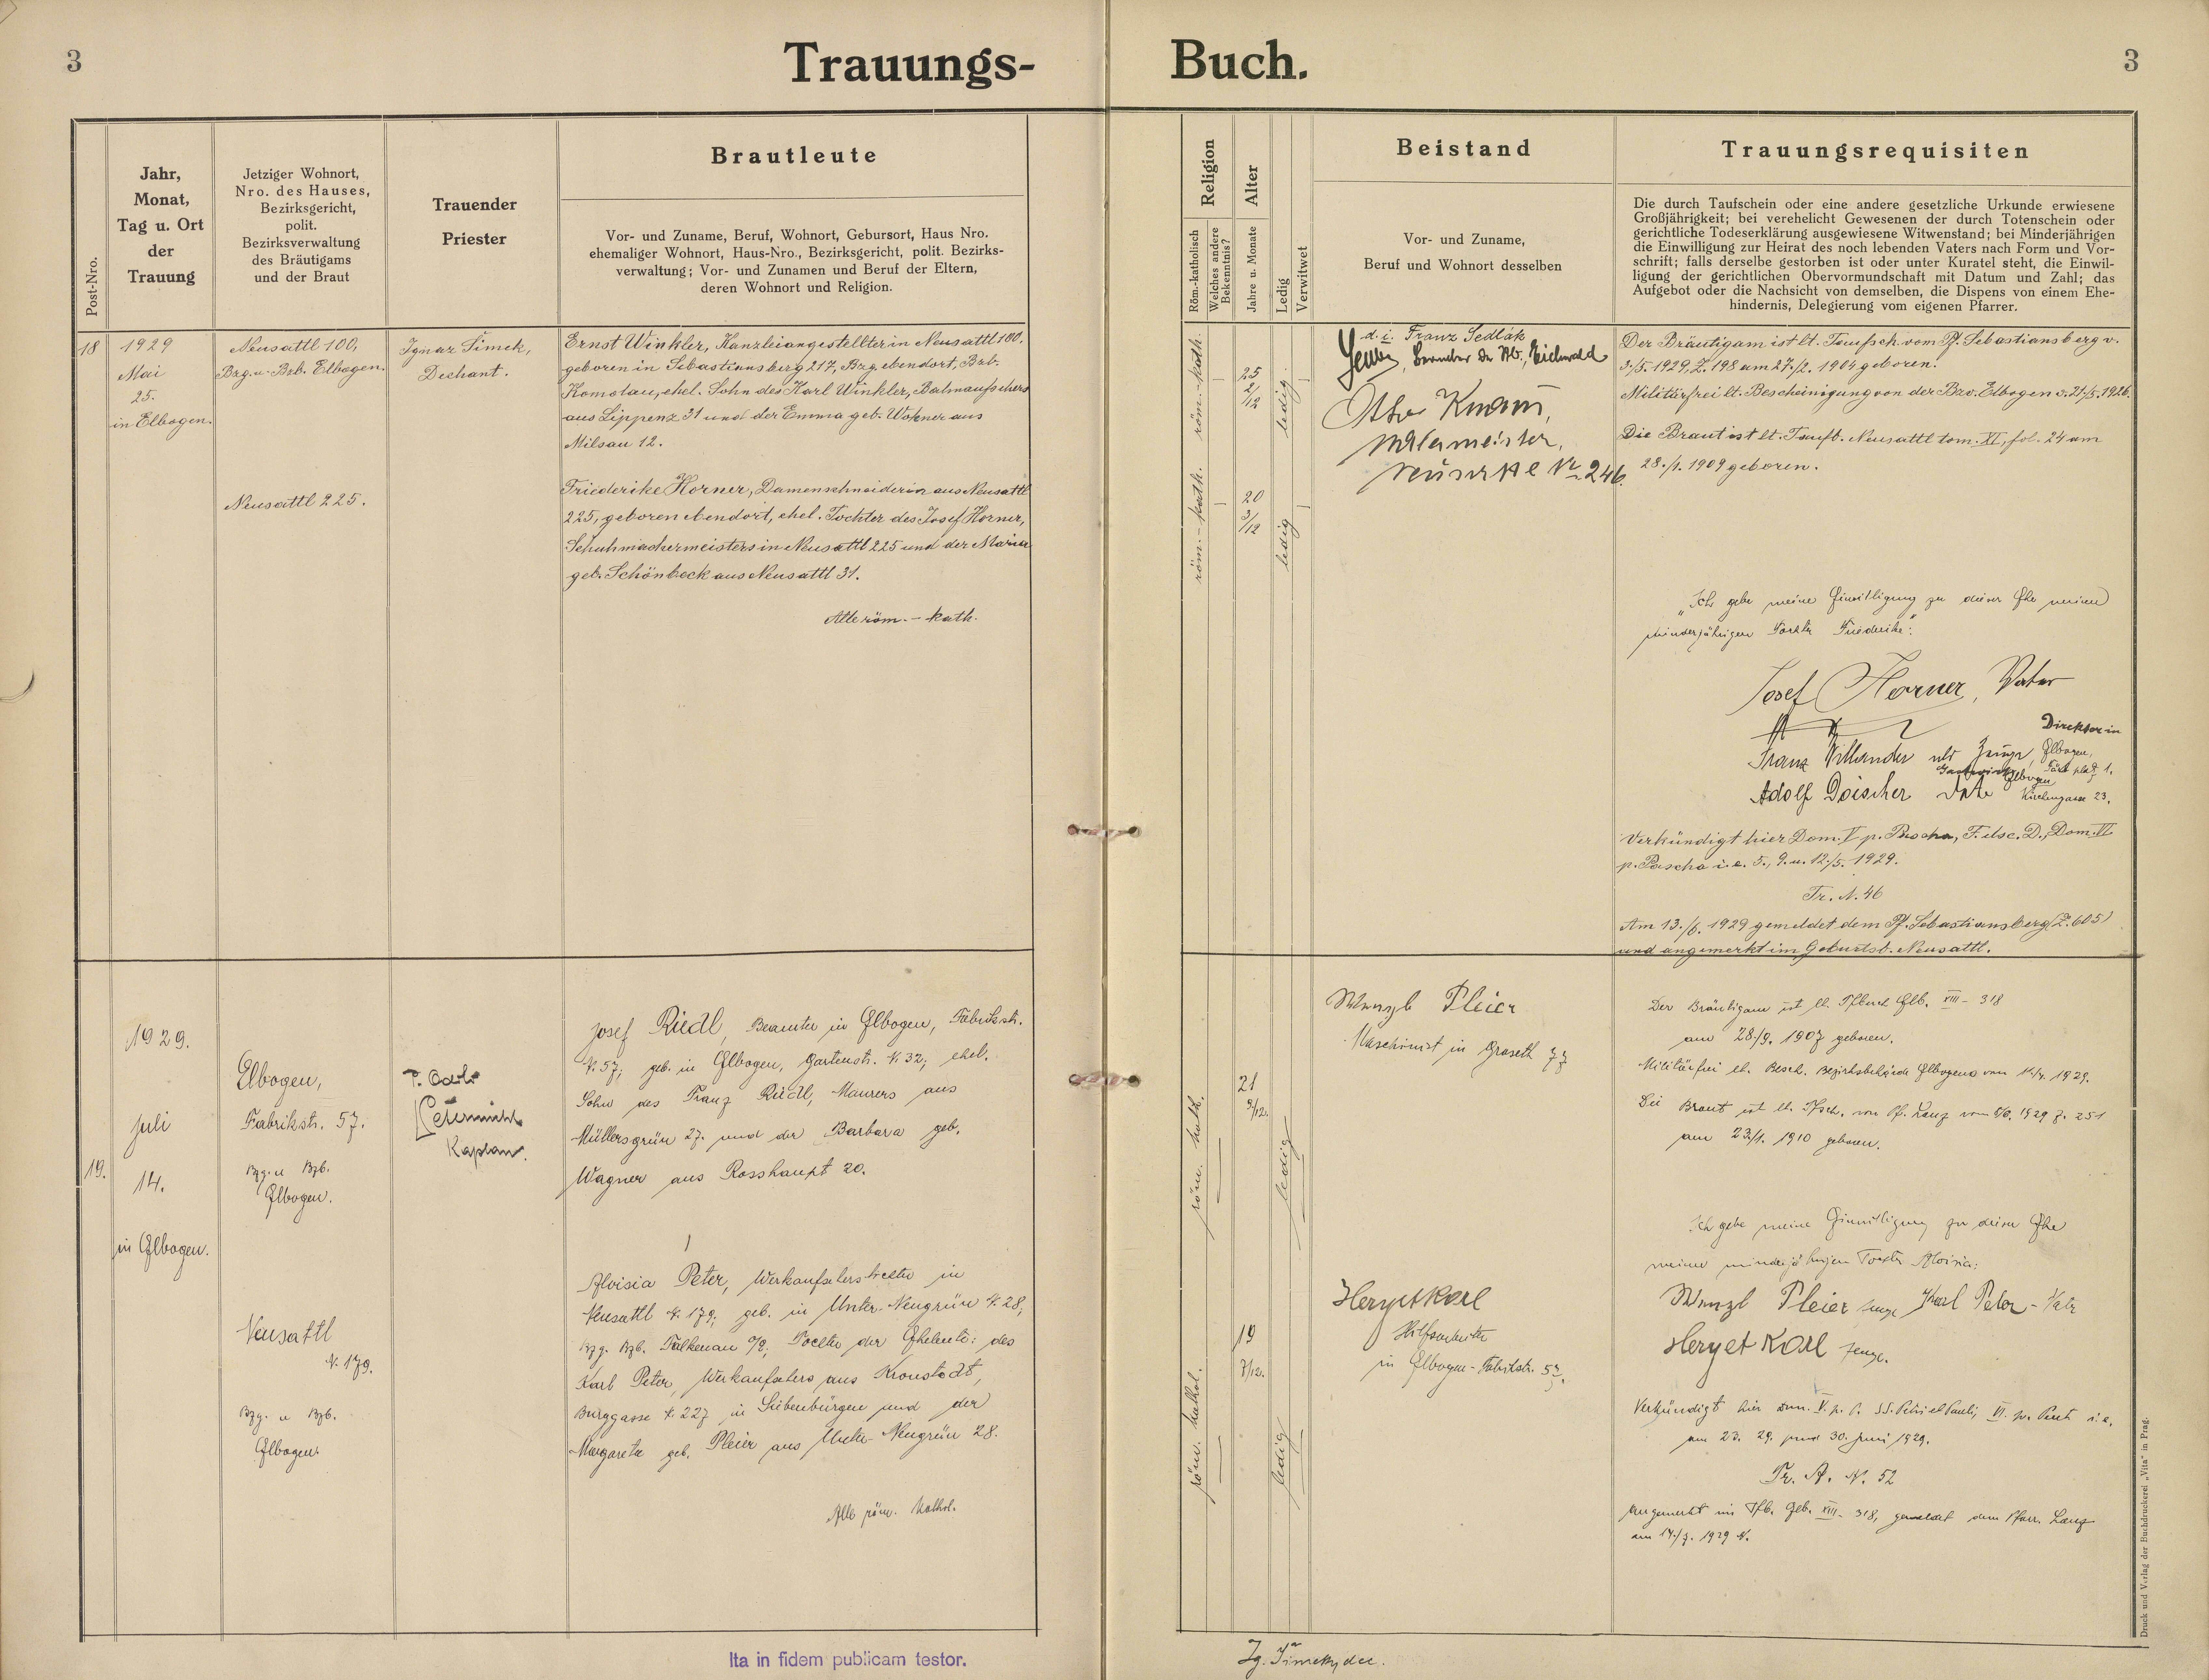 3
Trauungs-
Buch.
3
Post-Nro.
Jahr,
Monat,
Tag u. Ort
der
Trauung
Jetziger Wohnort,
Nro. des Hauses,
Bezirksgericht,
polit.
Bezirksverwaltung
des Bräutigams
und der Braut
Trauender
Priester
Brautleute
Vor- und Zuname, Beruf, Wohnort, Gebursort, Haus Nro.
ehemaliger Wohnort, Haus-Nro., Bezirksgericht, polit. Bezirks-
verwaltung; Vor- und Zunamen und Beruf der Eltern,
deren Wohnort und Religion.
Religion
Röm.-katholisch
Welches andere
Bekenntnis?
Alter
Jahre u. Monate
Ledig
Verwitwet
Beistand
Vor- und Zuname,
Beruf und Wohnort desselben
Trauungsrequisiten
Die durch Taufschein oder eine andere gesetzliche Urkunde erwiesene
Großjährigkeit; bei verehelicht Gewesenen der durch Totenschein oder
gerichtliche Todeserklärung ausgewiesene Witwenstand; bei Minderjährigen
die Einwilligung zur Heirat des noch lebenden Vaters nach Form und Vor-
schrift; falls derselbe gestorben ist oder unter Kuratel steht, die Einwil-
ligung der gerichtlichen Obervormundschaft mit Datum und Zahl; das
Aufgebot oder die Nachsicht von demselben, die Dispens von einem Ehe-
hindernis, Delegierung vom eigenen Pfarrer.
18
1929
Mai
25.
in Elbogen.
Neusattl 100,
Bzg. u. Bzb. Elbogen.
Neusattl 225.
Ignaz Šimek,
Dechant.
Ernst Winkler, Kanzleiangestellter in Neusattl 100,
geboren in Sebastiansberg 217, Bzg. ebendort, Bzb.
Komotau, ehel. Sohn des Karl Winkler, Bahnaufsehers
aus Lippenz 31 und der Emma geb. Wohner aus
Milsau 12.
Friederike Horner, Damenschneiderin aus Neusattl
225, geboren ebendort, ehel. Tochter des Josef Horner,
Schuhmachermeisters in Neusattl 225 und der Maria
geb. Schönbeck aus Neusattl 31.
Alle röm.-kath.
röm.-kath.
25
2/12
ledig
röm.-kath.
20
3/12
ledig
d. i. Franz Sedlák
Eichwald
Otto Knam,
Malermeister,
Neusattl Nr 246.
Der Bräutigam ist lt. Taufsch. vom Pf. Sebastiansberg v.
3./5. 1929, Z. 198 am 27./2. 1904 geboren.
Militärfrei lt. Bescheinigung von der Bzv. Elbogen v. 21./5. 1926.
Die Braut ist lt. Taufb. Neusattl tom. XI, fol. 24 am
28./1. 1909 geboren.
"Ich gebe meine Einwilligung zu dieser Ehe meiner
minderjährigen Tochter Friederike".
Josef Horner, Vater
Direktor in
Franz Willander als Zeuge, Elbogen,
Gastwirt Elbogen
Adolf Doischer Kirchengasse 23.
Verkündigt hier Dom. V p. Pascha, F. Asc. D., Dom. VI
p. Pascha i. e. 5., 9. u. 12./5. 1929.
Tr. A. 46
Am 13./6. 1929 gemeldet dem Pf. Sebastiansberg (Z. 605)
und angemerkt im Geburtsb. Neusattl.
19.
1929.
Juli
14.
in Elbogen.
Elbogen,
Fabrikstr. 57.
Bzg. u Bzb.
Elbogen.
Neusattl
N. 179.
Bzg. u Bzb.
Elbogen.
Kaplan.
Josef Riedl, Beamter in Elbogen, Fabrikstr.
N. 57; geb. in Elbogen, Gartenstr. N. 32; ehel.
Sohn des Franz Riedl, Maurers aus
Müllersgrün 27. und der Barbara geb.
Wagner aus Rosshaupt 20.
Aloisia Peter, Werkaufseherstochter in
Neusattl N. 179; geb. in Unter-Neugrün N. 28,
Bzg. Bzb. Falkenau a/E; Tochter der Eheleute: des
Karl Peter, Werkaufsehers aus Kronstadt,
Burggasse N. 227 in Siebenbürgen und der
Margareta geb. Pleier aus Unter-Neugrün 28.
Alle röm. kathol.
röm. kath.
21
9/12.
ledig
röm. kathol.
19
7/12.
ledig
Wenzl Pleier
Maschinist in Graseth 77
Herget Karl
Hilfsarbeiter
in Elbogen-Fabrikstr. 57.
Der Bräutigam ist lt. Tfbuch Elb. XIII - 318
am 28./9. 1907 geboren.
Militärfrei lt. Besch. Bezirksbehörde Elbogen vom 1929.
Die Braut ist lt. Tfsch. von Pf. Lanz vom 1929 Z. 251
am 23./1. 1910 geboren.
Ich gebe meine Einwilligung zu dieser Ehe
meiner minderjährigen Tochter Aloisia:
Wenzl Pleier Zeuge Karl Peter - Vater
Herget Karl Zeuge.
Verkündigt hier dom. V. p. P. SS. Petri et Pauli, VI. p. Pent. i. e.
am 23. 29. und 30. Juni 1929.
Tr. A. N. 52
Angemerkt im Tfb. Elb. XIII - 318, gemeldet dem Pfarr. Lanz
am 14./7. 1929 N.
Druck und Verlag der Buchdruckerei „Vita" in Prag.
Ita in fidem publicam testor.
Ig. Šimek, dec.